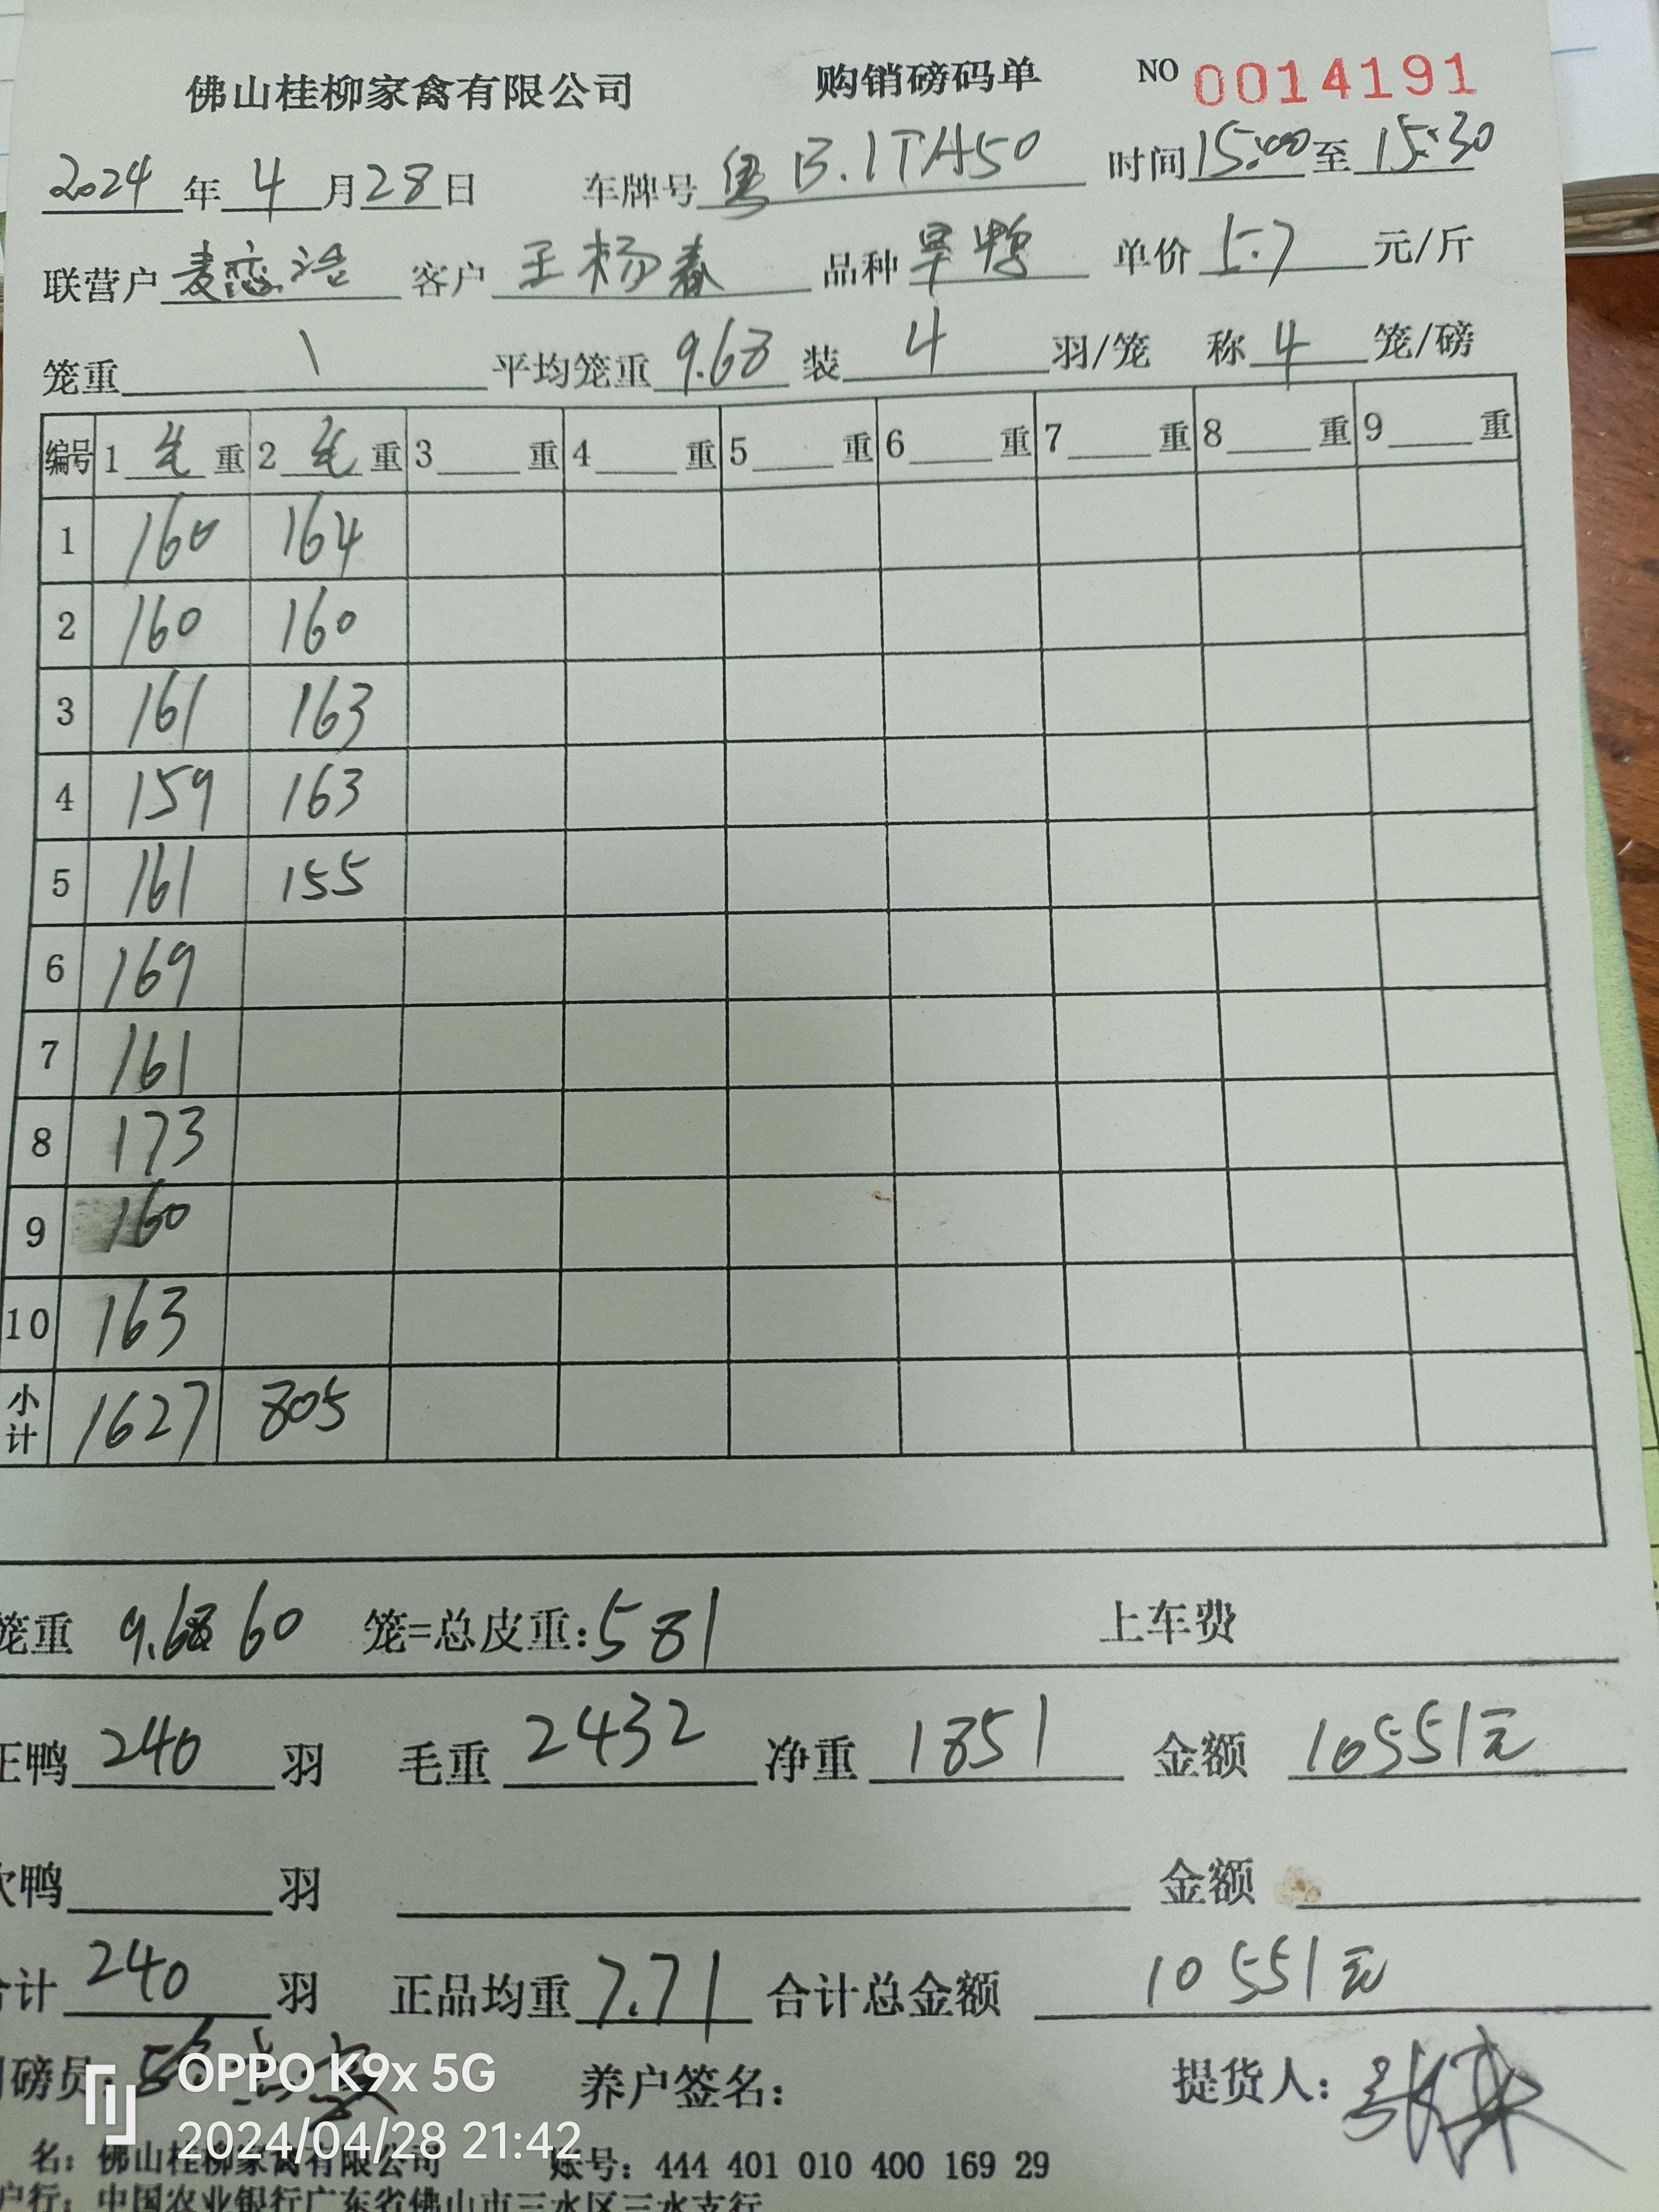 佛山桂柳家禽有限公司 购销磅码单 NO 0014191
2024年4月28日 车牌号 粤B.1TA50 时间15:00至15:30
联营户 麦恋浩 客户 王杨春 品种 旱鸭 单价 5.7 元/斤
笼重 \ 平均笼重 9.68 装 4 羽/笼 称 4 笼/磅
编号 1 毛 重 2 毛 重 3 重 4 重 5 重 6 重 7 重 8 重 9 重
1 160 164
2 160 160
3 161 163
4 159 163
5 161 155
6 169
7 161
8 173
9 160
10 163
小计 1627 805
笼重 9.68 60 笼=总皮重:581 上车费
正鸭 240 羽 毛重 2432 净重 1851 金额 10551元
次鸭 羽 金额
合计 240 羽 正品均重 7.71 合计总金额 10551元
磅员: 养户签名: 提货人:
OPPO K9x 5G
2024/04/28 21:42
名: 佛山桂柳家禽有限公司 账号: 444 401 010 400 169 29
户行: 中国农业银行广东省佛山市三水区三水支行